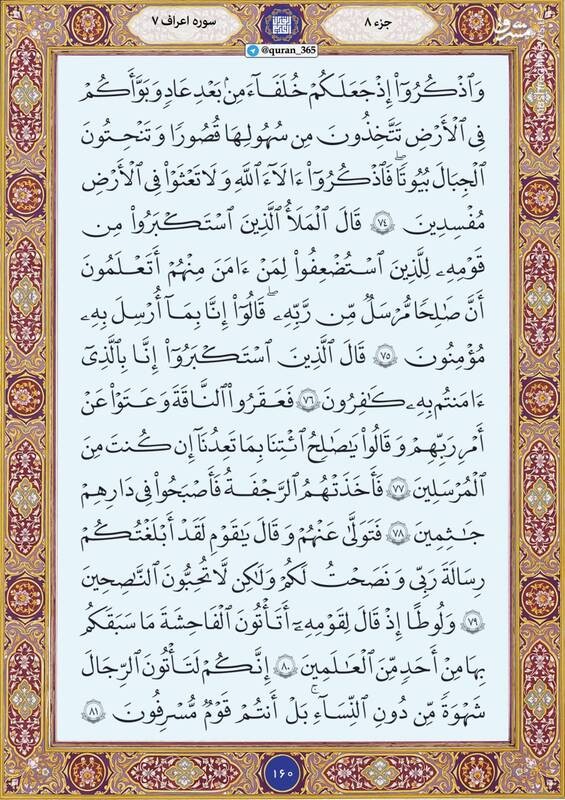 جزء ۸
سوره اعراف ۷
@quran_365
وَٱذۡكُرُوٓاْ إِذۡ جَعَلَكُمۡ خُلَفَآءَ مِنۢ بَعۡدِ عَادٖ وَبَوَّأَكُمۡ
فِي ٱلۡأَرۡضِ تَتَّخِذُونَ مِن سُهُولِهَا قُصُورٗا وَتَنۡحِتُونَ
ٱلۡجِبَالَ بُيُوتٗاۖ فَٱذۡكُرُوٓاْ ءَالَآءَ ٱللَّهِ وَلَا تَعۡثَوۡاْ فِي ٱلۡأَرۡضِ
مُفۡسِدِينَ ٧٤ قَالَ ٱلۡمَلَأُ ٱلَّذِينَ ٱسۡتَكۡبَرُواْ مِن
قَوۡمِهِۦ لِلَّذِينَ ٱسۡتُضۡعِفُواْ لِمَنۡ ءَامَنَ مِنۡهُمۡ أَتَعۡلَمُونَ
أَنَّ صَٰلِحٗا مُّرۡسَلٞ مِّن رَّبِّهِۦۚ قَالُوٓاْ إِنَّا بِمَآ أُرۡسِلَ بِهِۦ
مُؤۡمِنُونَ ٧٥ قَالَ ٱلَّذِينَ ٱسۡتَكۡبَرُوٓاْ إِنَّا بِٱلَّذِيٓ
ءَامَنتُم بِهِۦ كَٰفِرُونَ ٧٦ فَعَقَرُواْ ٱلنَّاقَةَ وَعَتَوۡاْ عَنۡ
أَمۡرِ رَبِّهِمۡ وَقَالُواْ يَٰصَٰلِحُ ٱئۡتِنَا بِمَا تَعِدُنَآ إِن كُنتَ مِنَ
ٱلۡمُرۡسَلِينَ ٧٧ فَأَخَذَتۡهُمُ ٱلرَّجۡفَةُ فَأَصۡبَحُواْ فِي دَارِهِمۡ
جَٰثِمِينَ ٧٨ فَتَوَلَّىٰ عَنۡهُمۡ وَقَالَ يَٰقَوۡمِ لَقَدۡ أَبۡلَغۡتُكُمۡ
رِسَالَةَ رَبِّي وَنَصَحۡتُ لَكُمۡ وَلَٰكِن لَّا تُحِبُّونَ ٱلنَّٰصِحِينَ
٧٩ وَلُوطًا إِذۡ قَالَ لِقَوۡمِهِۦٓ أَتَأۡتُونَ ٱلۡفَٰحِشَةَ مَا سَبَقَكُم
بِهَا مِنۡ أَحَدٖ مِّنَ ٱلۡعَٰلَمِينَ ٨٠ إِنَّكُمۡ لَتَأۡتُونَ ٱلرِّجَالَ
شَهۡوَةٗ مِّن دُونِ ٱلنِّسَآءِۚ بَلۡ أَنتُمۡ قَوۡمٞ مُّسۡرِفُونَ ٨١
۱۶۰